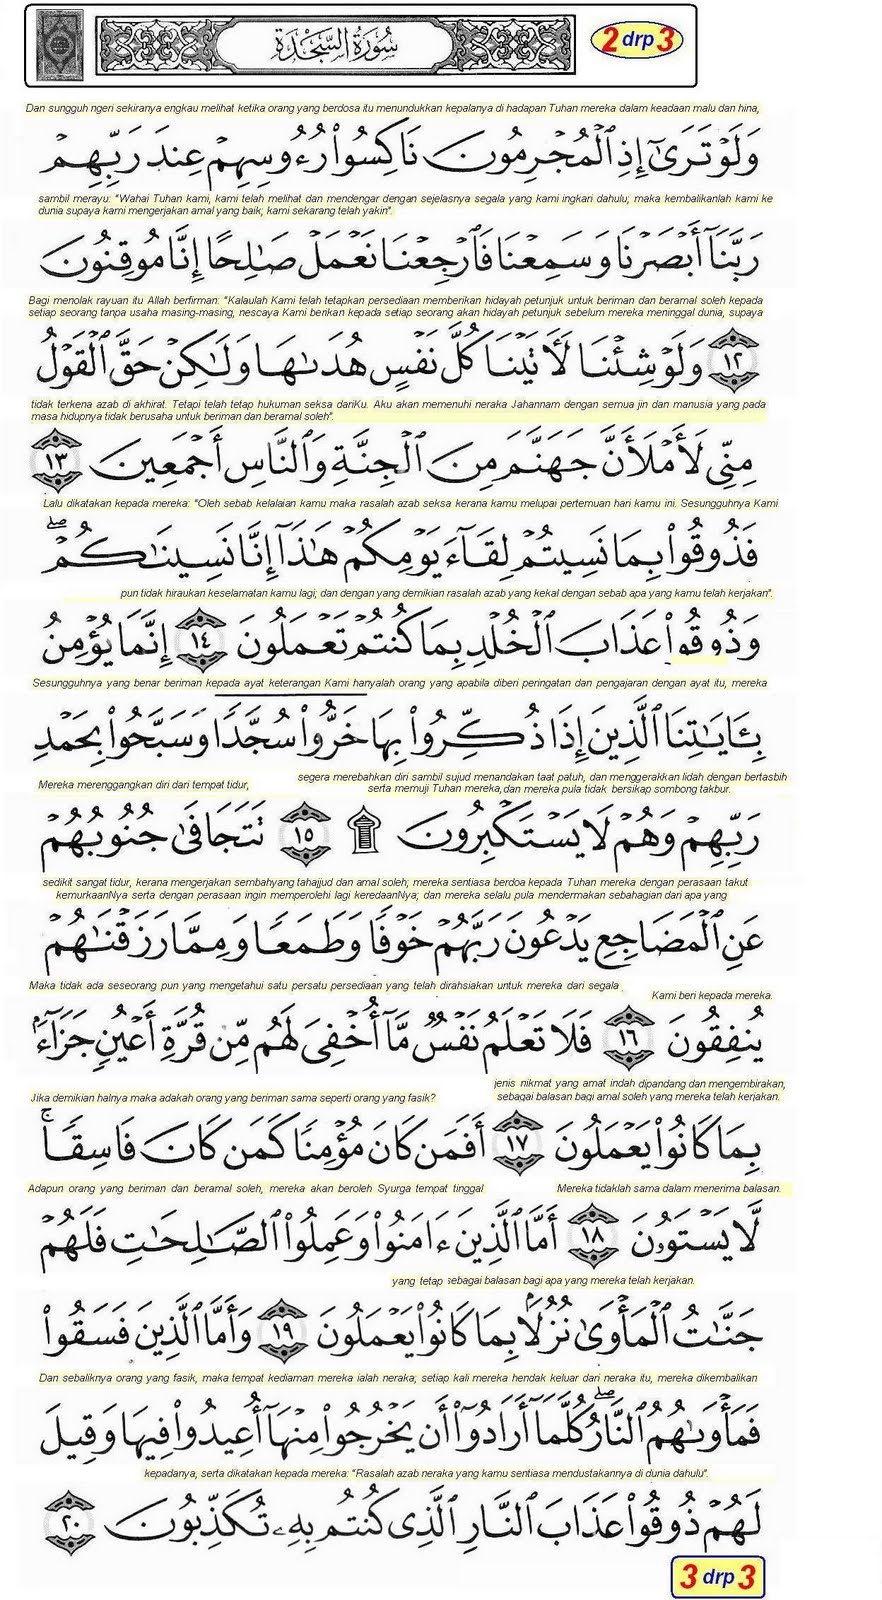 سُورَةُ السَّجْدَةِ
2 drp 3
Dan sungguh ngeri sekiranya engkau melihat ketika orang yang berdosa itu menundukkan kepalanya di hadapan Tuhan mereka dalam keadaan malu dan hina,
وَلَوْ تَرَىٰٓ إِذِ ٱلْمُجْرِمُونَ نَاكِسُوا۟ رُءُوسِهِمْ عِندَ رَبِّهِمْ
sambil merayu: "Wahai Tuhan kami, kami telah melihat dan mendengar dengan sejelasnya segala yang kami ingkari dahulu; maka kembalikanlah kami ke
dunia supaya kami mengerjakan amal yang baik; kami sekarang telah yakin".
رَبَّنَآ أَبْصَرْنَا وَسَمِعْنَا فَٱرْجِعْنَا نَعْمَلْ صَـٰلِحًا إِنَّا مُوقِنُونَ
Bagi menolak rayuan itu Allah berfirman: "Kalaulah Kami telah tetapkan persediaan memberikan hidayah petunjuk untuk beriman dan beramal soleh kepada
setiap seorang tanpa usaha masing-masing, nescaya Kami berikan kepada setiap seorang akan hidayah petunjuk sebelum mereka meninggal dunia, supaya
١٢ وَلَوْ شِئْنَا لَـَٔاتَيْنَا كُلَّ نَفْسٍ هُدَىٰهَا وَلَـٰكِنْ حَقَّ ٱلْقَوْلُ
tidak terkena azab di akhirat. Tetapi telah tetap hukuman seksa dariKu. Aku akan memenuhi neraka Jahannam dengan semua jin dan manusia yang pada
masa hidupnya tidak berusaha untuk beriman dan beramal soleh".
مِنِّى لَأَمْلَأَنَّ جَهَنَّمَ مِنَ ٱلْجِنَّةِ وَٱلنَّاسِ أَجْمَعِينَ ١٣
Lalu dikatakan kepada mereka: "Oleh sebab kelalaian kamu maka rasalah azab seksa kerana kamu melupai pertemuan hari kamu ini. Sesungguhnya Kami
فَذُوقُوا۟ بِمَا نَسِيتُمْ لِقَآءَ يَوْمِكُمْ هَـٰذَآ إِنَّا نَسِينَـٰكُمْ ۖ
pun tidak hiraukan keselamatan kamu lagi; dan dengan yang demikian rasalah azab yang kekal dengan sebab apa yang kamu telah kerjakan".
وَذُوقُوا۟ عَذَابَ ٱلْخُلْدِ بِمَا كُنتُمْ تَعْمَلُونَ ١٤ إِنَّمَا يُؤْمِنُ
Sesungguhnya yang benar beriman kepada ayat keterangan Kami hanyalah orang yang apabila diberi peringatan dan pengajaran dengan ayat itu, mereka
بِـَٔايَـٰتِنَا ٱلَّذِينَ إِذَا ذُكِّرُوا۟ بِهَا خَرُّوا۟ سُجَّدًا وَسَبَّحُوا۟ بِحَمْدِ
segera merebahkan diri sambil sujud menandakan taat patuh, dan menggerakkan lidah dengan bertasbih
serta memuji Tuhan mereka, dan mereka pula tidak bersikap sombong takbur.
Mereka merenggangkan diri dari tempat tidur,
رَبِّهِمْ وَهُمْ لَا يَسْتَكْبِرُونَ ۩ ١٥ تَتَجَافَىٰ جُنُوبُهُمْ
sedikit sangat tidur, kerana mengerjakan sembahyang tahajjud dan amal soleh; mereka sentiasa berdoa kepada Tuhan mereka dengan perasaan takut
kemurkaanNya serta dengan perasaan ingin memperolehi lagi keredaanNya; dan mereka selalu pula mendermakan sebahagian dari apa yang
عَنِ ٱلْمَضَاجِعِ يَدْعُونَ رَبَّهُمْ خَوْفًا وَطَمَعًا وَمِمَّا رَزَقْنَـٰهُمْ
Kami beri kepada mereka.
Maka tidak ada seseorang pun yang mengetahui satu persatu persediaan yang telah dirahsiakan untuk mereka dari segala
يُنفِقُونَ ١٦ فَلَا تَعْلَمُ نَفْسٌ مَّآ أُخْفِىَ لَهُم مِّن قُرَّةِ أَعْيُنٍ جَزَآءًۢ
jenis nikmat yang amat indah dipandang dan mengembirakan,
sebagai balasan bagi amal soleh yang mereka telah kerjakan.
Jika demikian halnya maka adakah orang yang beriman sama seperti orang yang fasik?
بِمَا كَانُوا۟ يَعْمَلُونَ ١٧ أَفَمَن كَانَ مُؤْمِنًا كَمَن كَانَ فَاسِقًا ۚ
Mereka tidaklah sama dalam menerima balasan.
Adapun orang yang beriman dan beramal soleh, mereka akan beroleh Syurga tempat tinggal
لَّا يَسْتَوُۥنَ ١٨ أَمَّا ٱلَّذِينَ ءَامَنُوا۟ وَعَمِلُوا۟ ٱلصَّـٰلِحَـٰتِ فَلَهُمْ
yang tetap sebagai balasan bagi apa yang mereka telah kerjakan.
جَنَّـٰتُ ٱلْمَأْوَىٰ نُزُلًۢا بِمَا كَانُوا۟ يَعْمَلُونَ ١٩ وَأَمَّا ٱلَّذِينَ فَسَقُوا۟
Dan sebaliknya orang yang fasik, maka tempat kediaman mereka ialah neraka; setiap kali mereka hendak keluar dari neraka itu, mereka dikembalikan
فَمَأْوَىٰهُمُ ٱلنَّارُ ۖ كُلَّمَآ أَرَادُوٓا۟ أَن يَخْرُجُوا۟ مِنْهَآ أُعِيدُوا۟ فِيهَا وَقِيلَ
kepadanya, serta dikatakan kepada mereka: "Rasalah azab neraka yang kamu sentiasa mendustakannya di dunia dahulu".
لَهُمْ ذُوقُوا۟ عَذَابَ ٱلنَّارِ ٱلَّذِى كُنتُم بِهِۦ تُكَذِّبُونَ ٢٠
3 drp 3